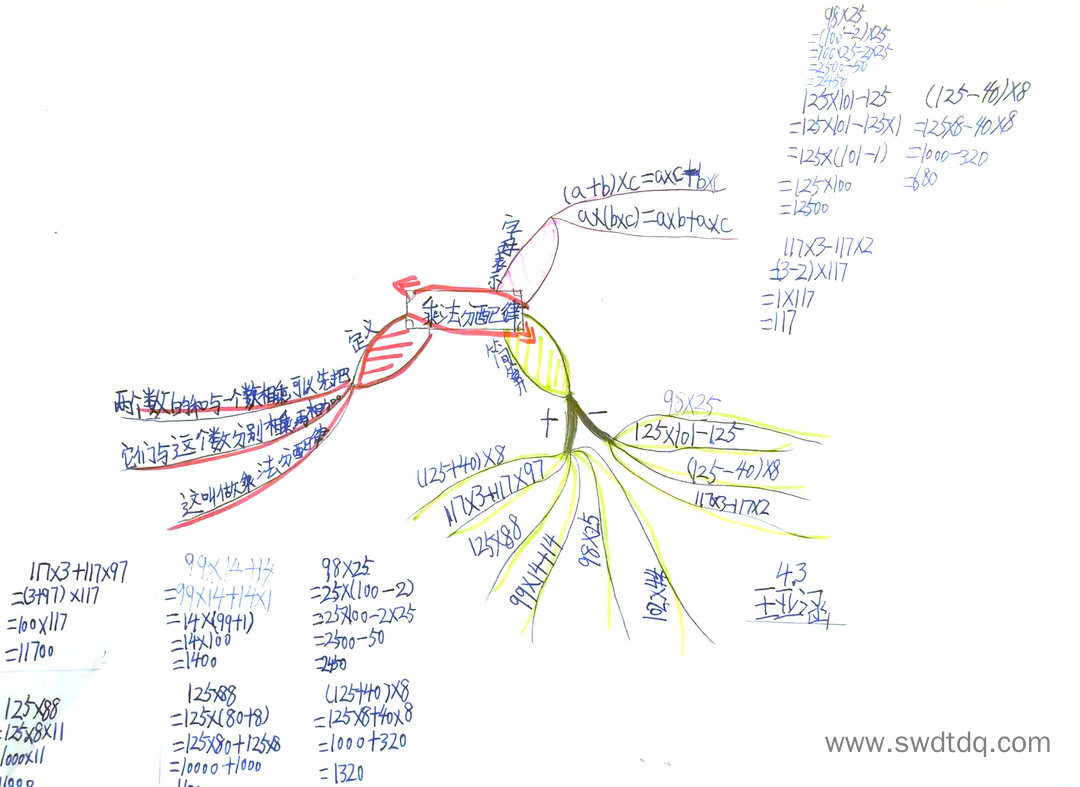 98×25
=(100-2)×25
=100×25-2×25
=2500-50
=2450
125×101-125
=125×101-125×1
=125×(101-1)
=125×100
=12500
(125-40)×8
=125×8-40×8
=1000-320
=680
117×3-117×2
=(3-2)×117
=1×117
=117
字母表示
(a+b)×c=a×c+b×c
a×(b×c)=a×b+a×c
乘法分配律
定义
两个数的和与一个数相乘可以先把
它们与这个数分别相乘再相加
这叫做乘法分配律
简算
+
-
98×25
125×101-125
(125-40)×8
117×3-117×2
(125+40)×8
117×3+117×97
125×88
99×14+14
98×25
102×44
4.3
117×3+117×97
=(3+97)×117
=100×117
=11700
99×14+14
=99×14+14×1
=14×(99+1)
=14×100
=1400
98×25
=25×(100-2)
=25×100-2×25
=2500-50
=2450
125×88
=125×8×11
1000×11
125×88
=125×(80+8)
=125×80+125×8
=10000+1000
(125+40)×8
=125×8+40×8
=1000+320
=1320
www.swdtdq.com